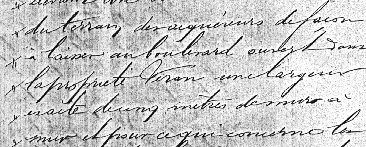 du terrain des acquereurs de façon
à laisser au boulevard ouvert dans
la propriété Véran une largeur
exacte de cinq mètres de mur à
mur et pour ce qui concerne les